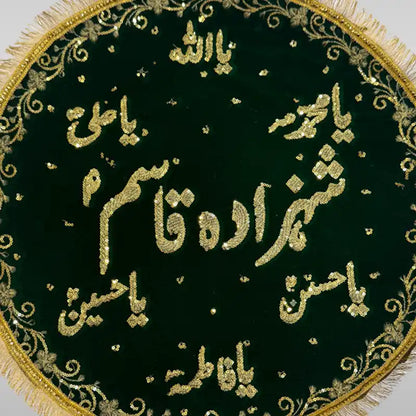 یا اللہ
یا محمدؐ
یا علیؑ
شہزادہ قاسمؑ
یا حسنؑ
یا حسینؑ
یا فاطمہؑ